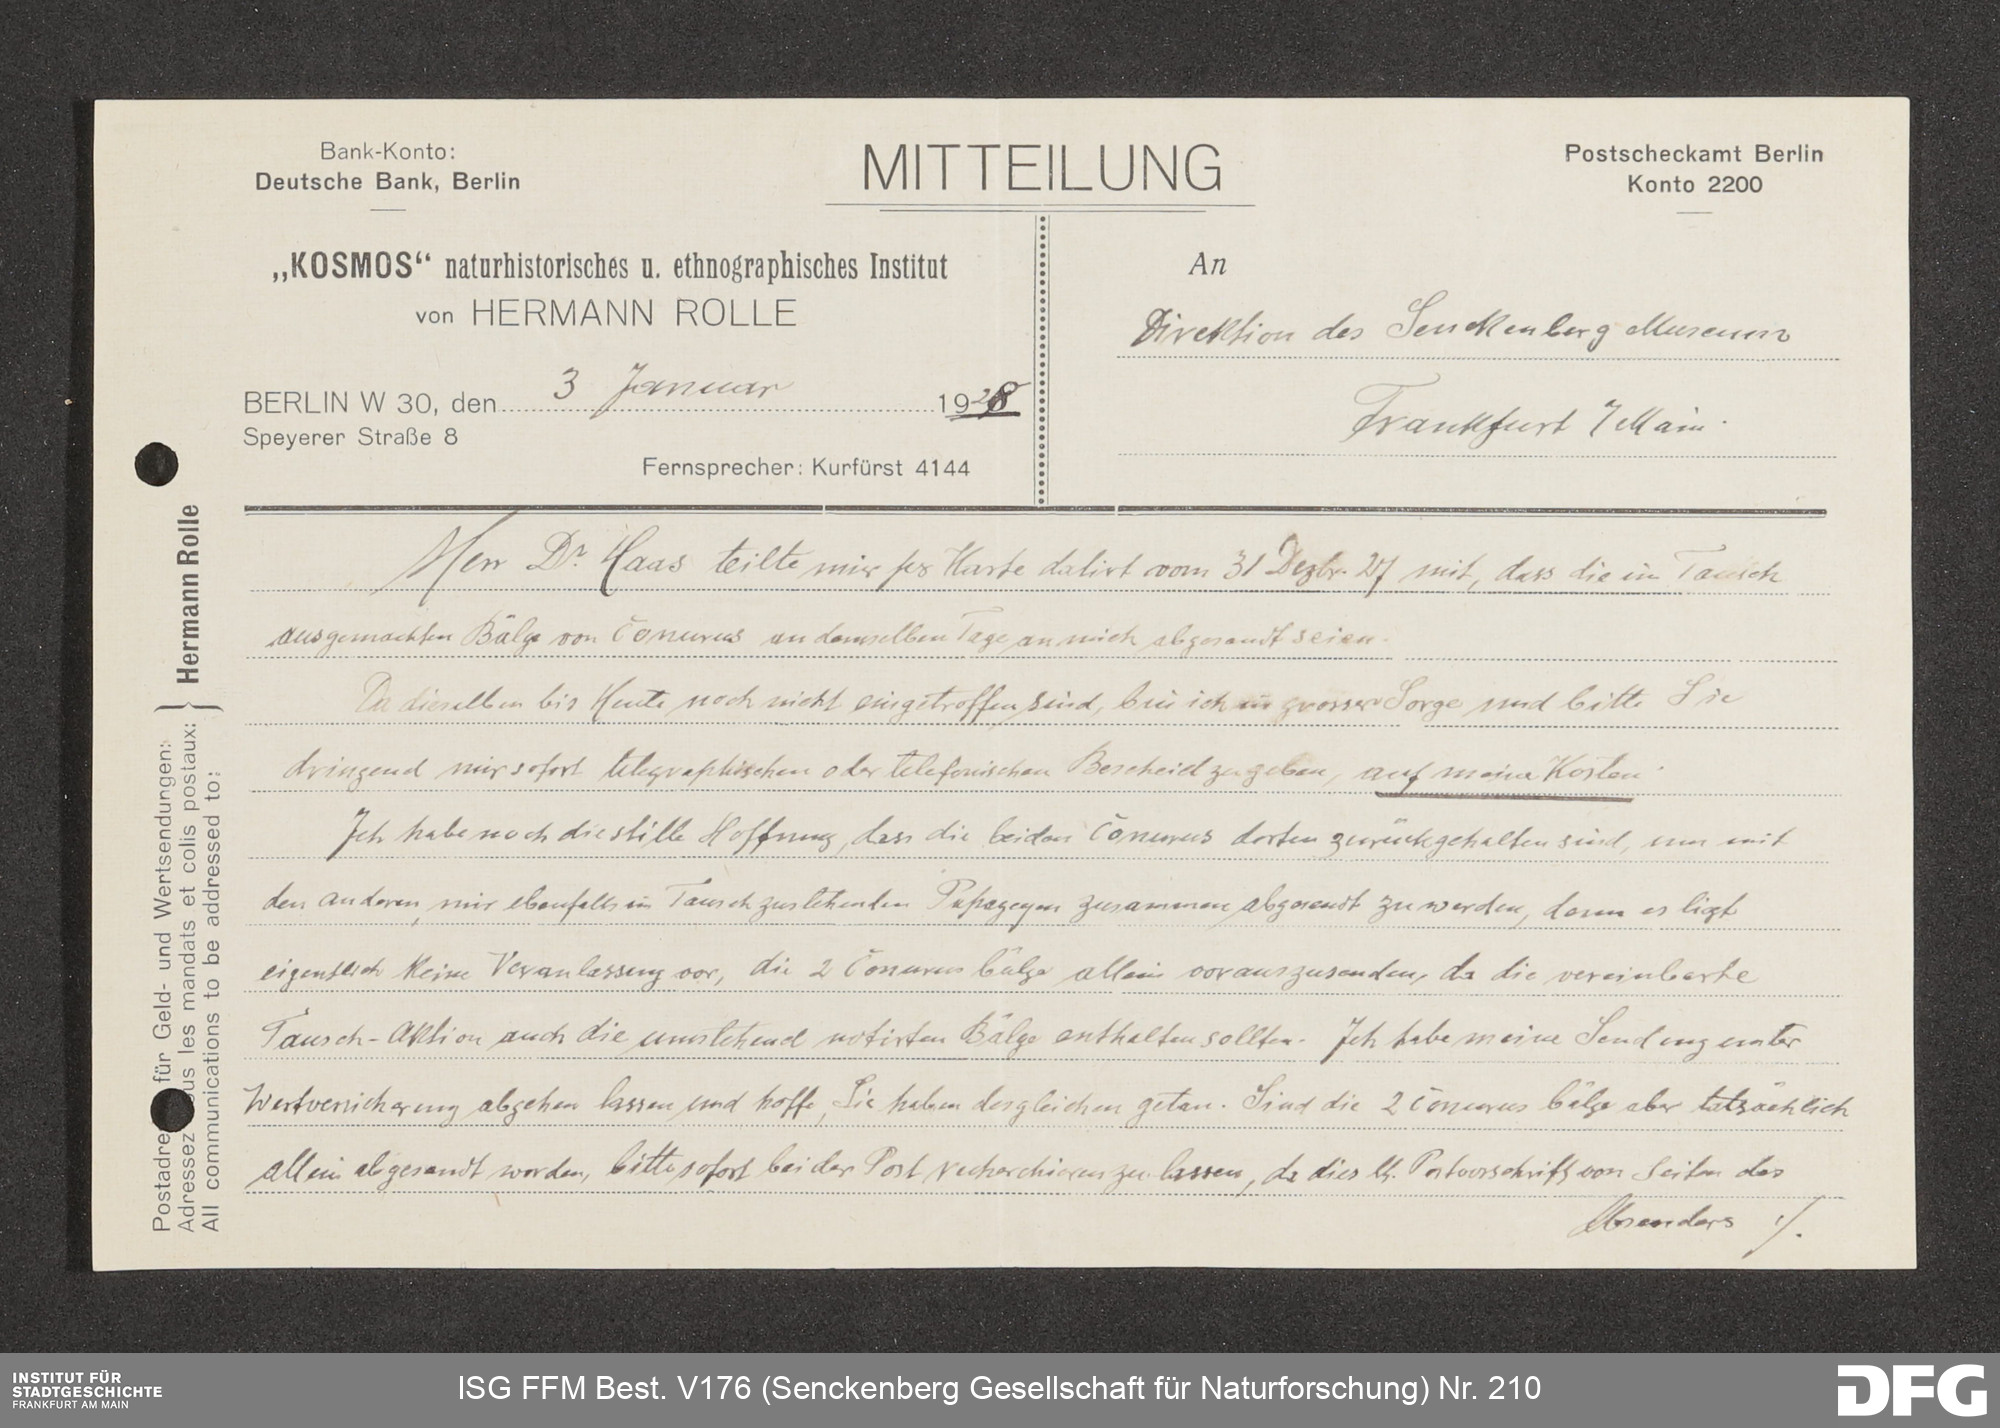 Bank-Konto:
Deutsche Bank, Berlin
MITTEILUNG
Postscheckamt Berlin
Konto 2200
„KOSMOS“ naturhistorisches u. ethnographisches Institut
von HERMANN ROLLE
BERLIN W 30, den 3 Januar 1928
Speyerer Straße 8
Fernsprecher: Kurfürst 4144
An
Direktion des Senckenberg Museum
Frankfurt / Main.
Herr Dr. Haas teilte mir per Karte datirt vom 31 Dezbr. 27 mit, dass die im Tausch
ausgemachten Bälge von Conurus an demselben Tage an mich abgesandt seien.
Da dieselben bis Heute noch nicht eingetroffen sind, bin ich in grosser Sorge und bitte Sie
dringend mir sofort telegraphischen oder telefonischen Bescheid zu geben, auf meine Kosten.
Ich habe noch die stille Hoffnung, dass die beiden Conurus dorten zurückgehalten sind, um mit
den anderen, mir ebenfalls im Tausch zustehenden Papageyen zusammen abgesandt zu werden, denn es ligt
eigentlich keine Veranlassung vor, die 2 Conurus bälge allein vorauszusenden, da die vereinbarte
Tausch-Aktion auch die umstehend notirten Bälge enthalten sollten. Ich habe meine Sendung unter
Wertversicherung abgehen lassen und hoffe, Sie haben desgleichen getan. Sind die 2 Conurus bälge aber tatsächlich
allein abgesandt worden, bitte sofort bei der Post recherchieren zu lassen, da dies lt. Postvorschrift von Seiten des
Absenders ./.
Postadre für Geld- und Wertsendungen:
Adressez ous les mandats et colis postaux:
All communications to be addressed to:
Hermann Rolle
INSTITUT FÜR
STADTGESCHICHTE
FRANKFURT AM MAIN
ISG FFM Best. V176 (Senckenberg Gesellschaft für Naturforschung) Nr. 210
DFG